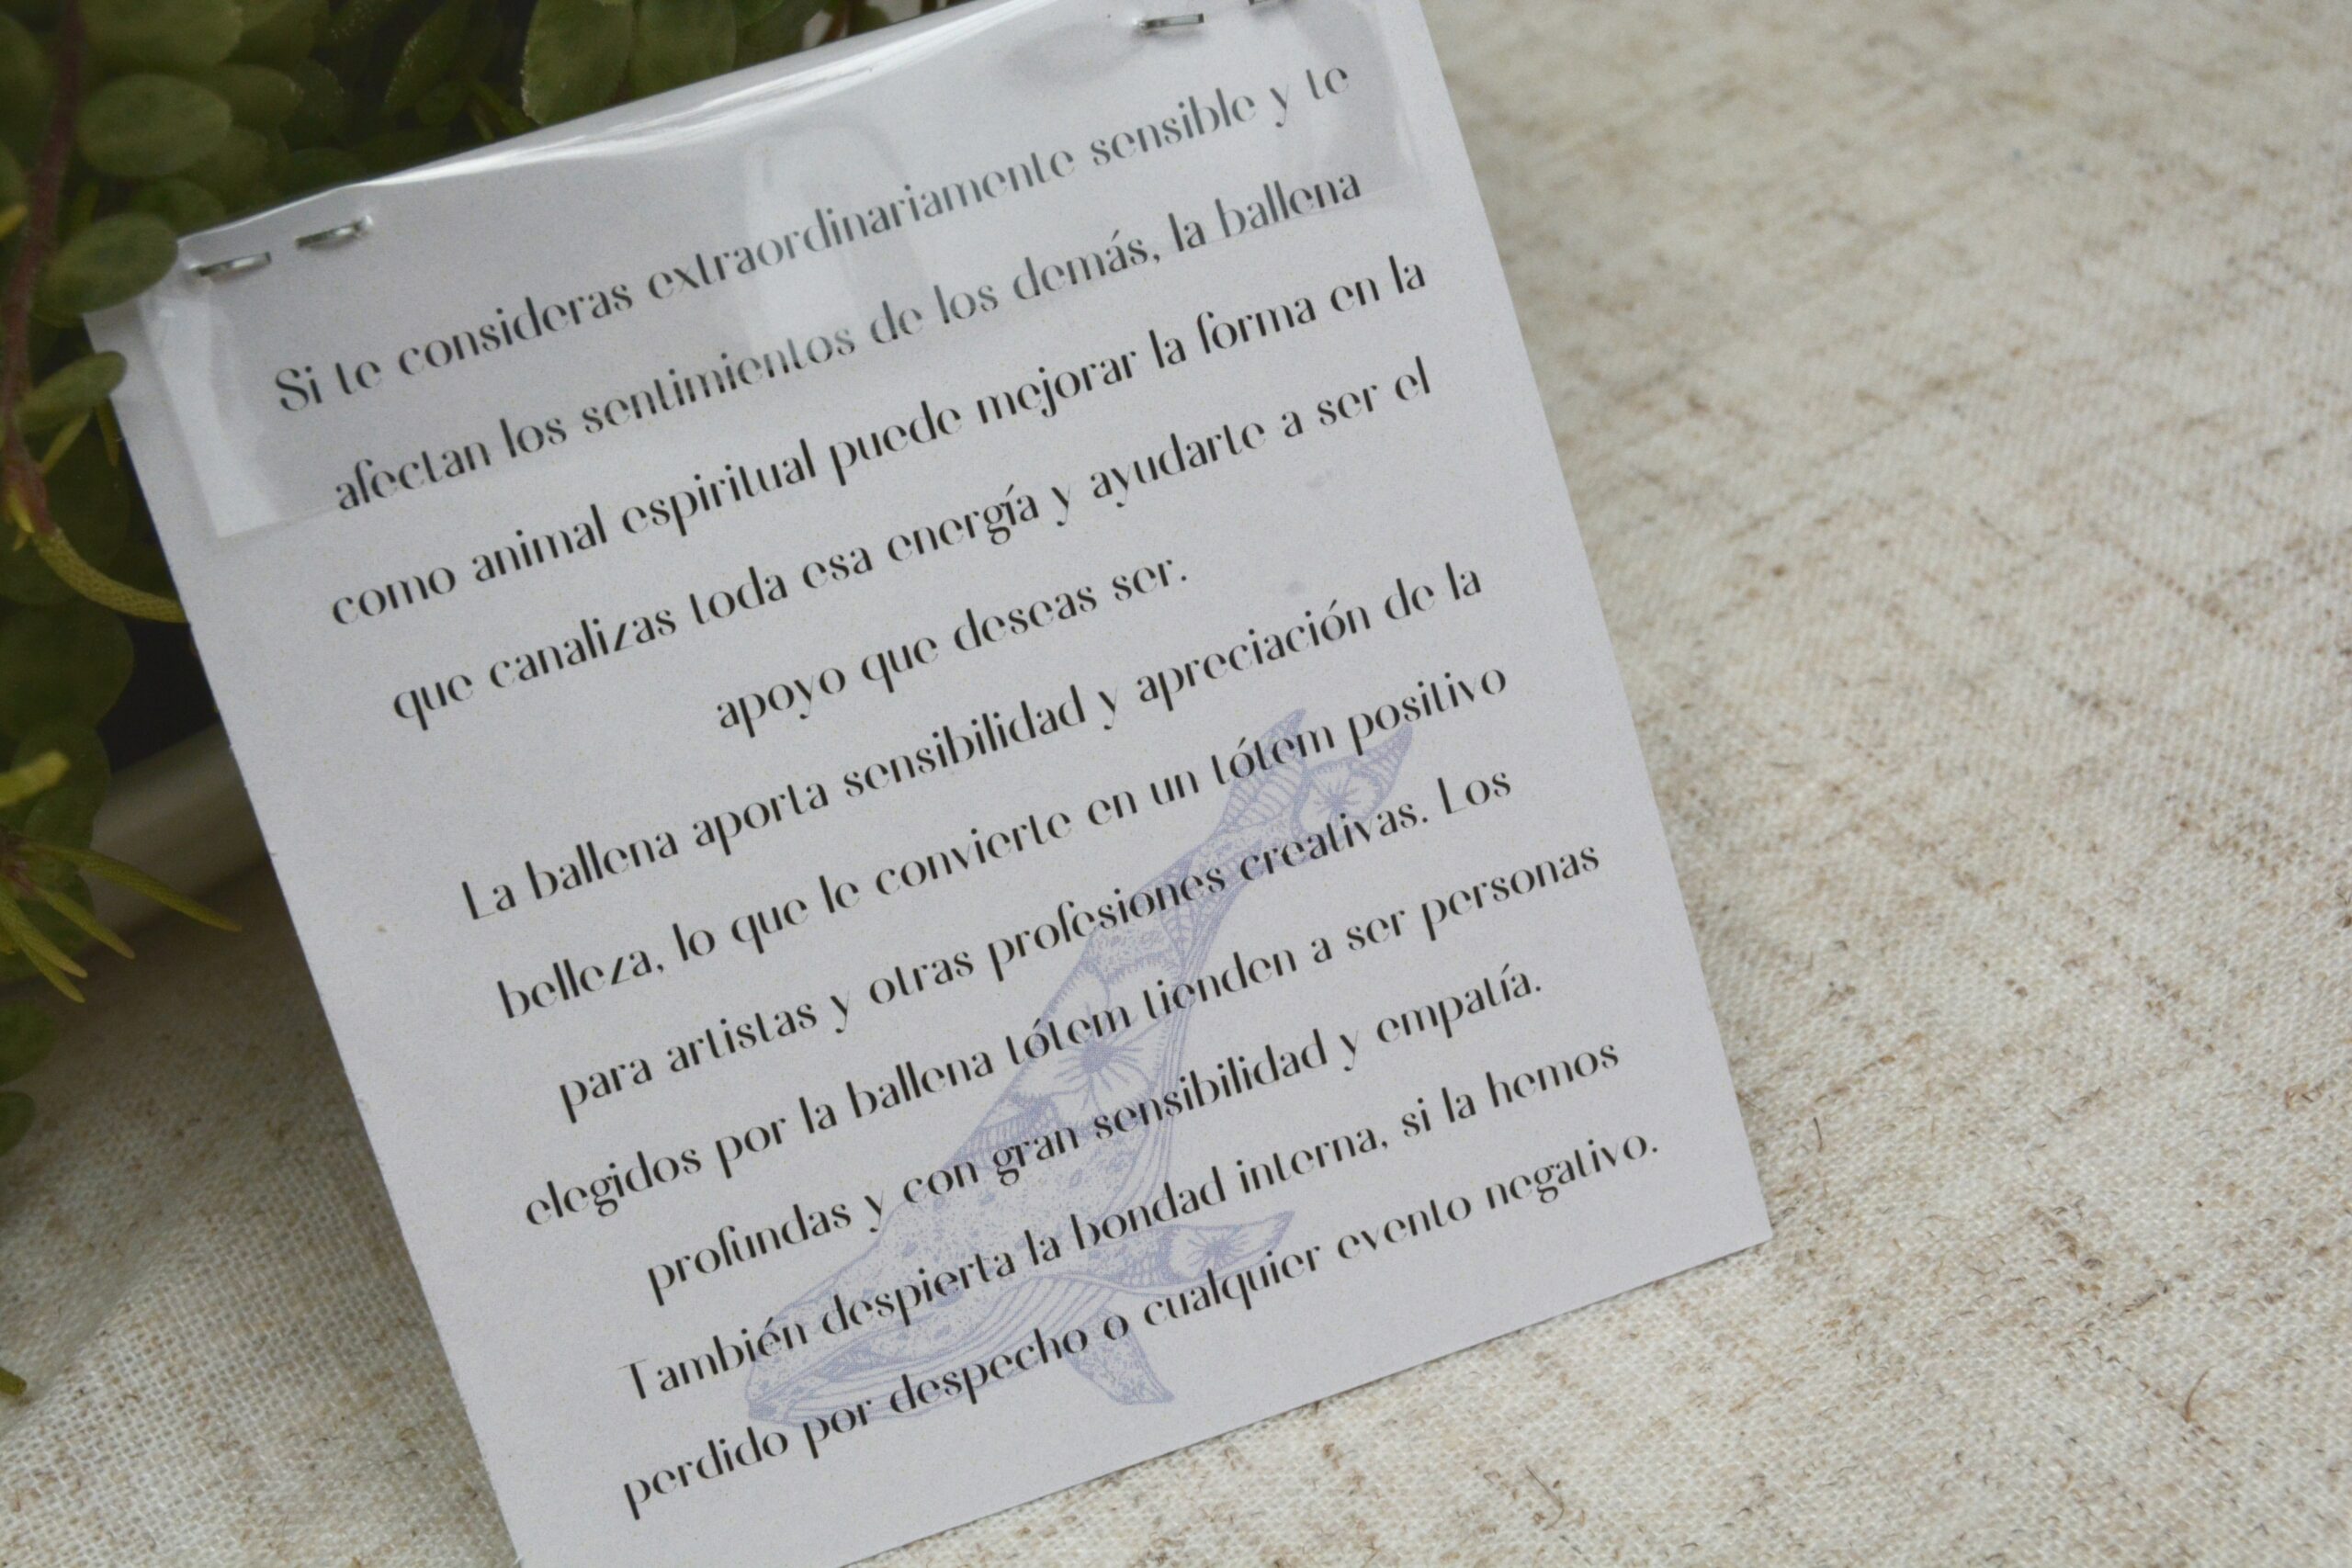 Si te consideras extraordinariamente sensible y te
afectan los sentimientos de los demás, la ballena
como animal espiritual puede mejorar la forma en la
que canalizas toda esa energía y ayudarte a ser el
apoyo que deseas ser.
La ballena aporta sensibilidad y apreciación de la
belleza, lo que le convierte en un tótem positivo
para artistas y otras profesiones creativas. Los
elegidos por la ballena tótem tienden a ser personas
profundas y con gran sensibilidad y empatía.
También despierta la bondad interna, si la hemos
perdido por despecho o cualquier evento negativo.